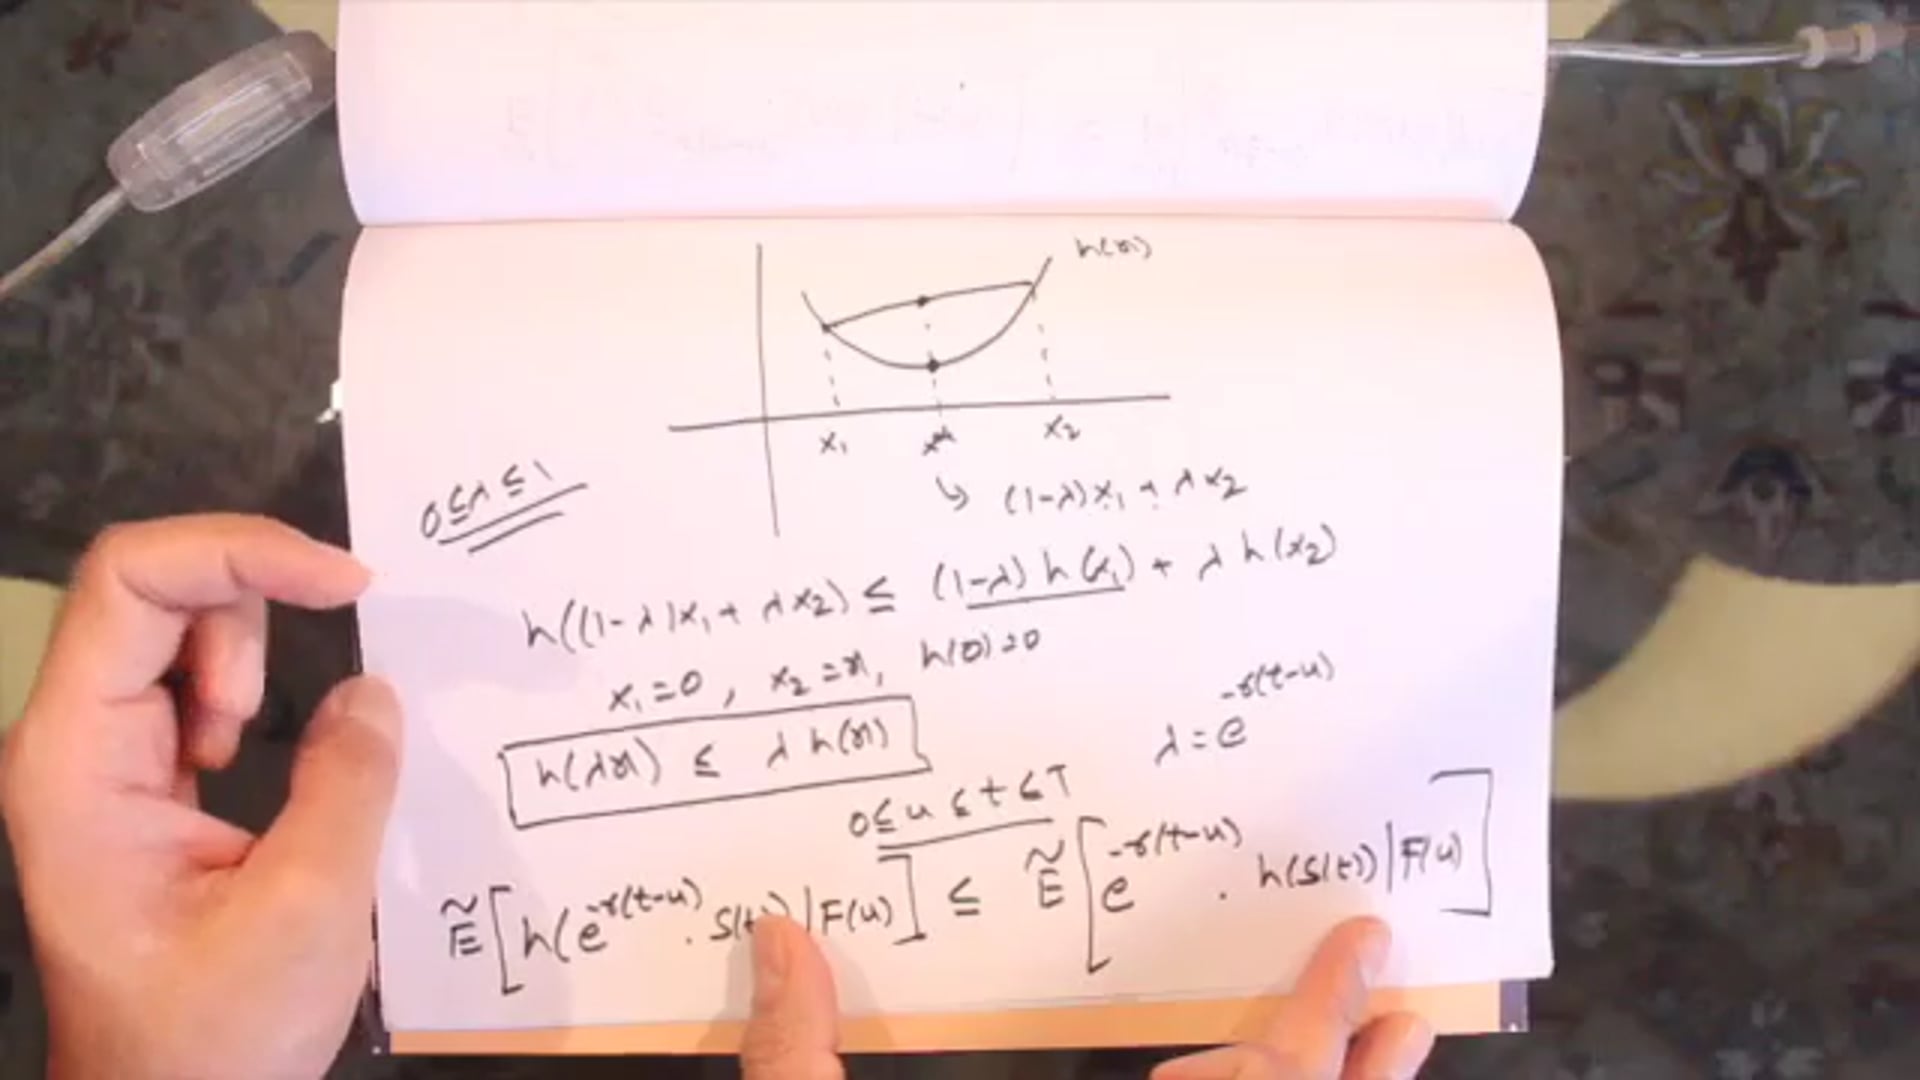 h(x)
x₁ x* x₂
↳ (1-λ)x₁ + λx₂
0≤λ≤1
h((1-λ)x₁ + λx₂) ≤ (1-λ) h(x₁) + λ h(x₂)
x₁=0, x₂=x, h(0)=0
h(λx) ≤ λ h(x)
λ = e^{-r(t-u)}
0≤u≤t≤T
Ẽ[h(e^{-r(t-u)} . S(t)) | F(u)] ≤ Ẽ[e^{-r(t-u)} . h(S(t)) | F(u)]